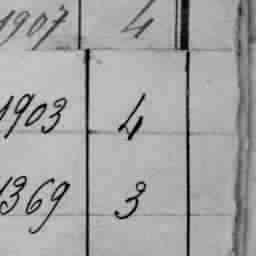 1907 4
1903 4
1369 3